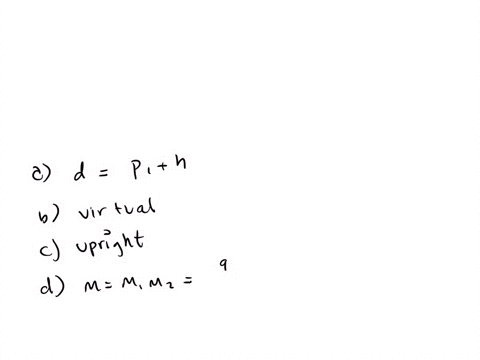 a) d = P₁ + h
b) virtual
c) upright
d) M = M₁ M₂ = 9